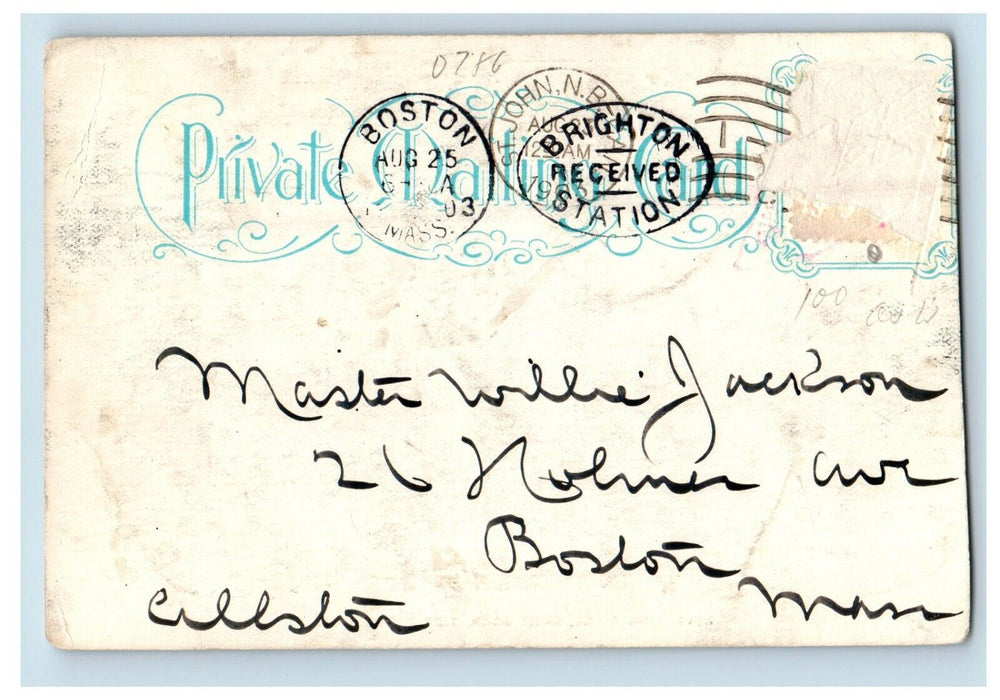 0786
Private Mailing Card
BOSTON
AUG 25
03
MASS.
ST. JOHN, N.B.
AUG
AM
1903
BRIGHTON
RECEIVED
STATION
100
Master Willie Jackson
26 Holmes Ave
Boston
Allston Mass